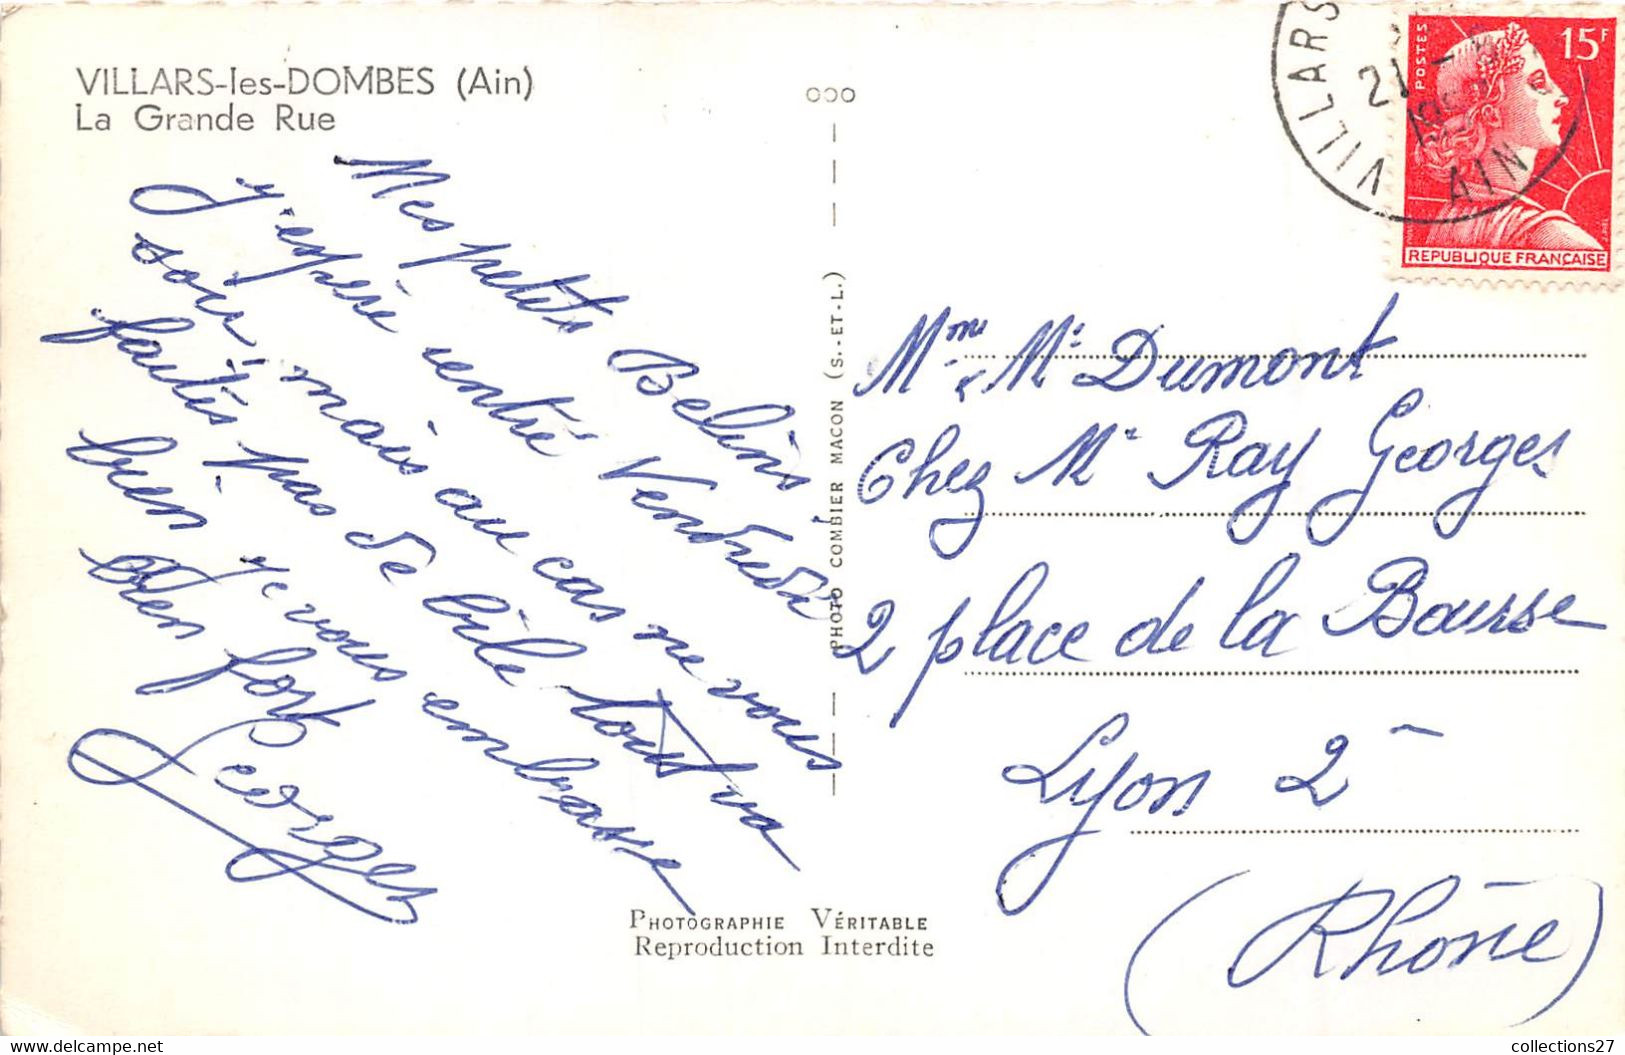 VILLARS-les-DOMBES (Ain)
La Grande Rue
Mes petits Belins
J'espère rentré Vendredi
soir, mais au cas ne vous
faites pas de bile tout va
bien je vous embrasse
bien fort
Georges
PHOTO COMBIER MACON (S.-ET-L.)
PHOTOGRAPHIE VÉRITABLE
Reproduction Interdite
VILLARS
21 -
AIN
POSTES
15F
REPUBLIQUE FRANÇAISE
Mme & Mr Dumont
Chez Mr Ray Georges
2 place de la Bourse
Lyon 2
(Rhône)
collections27